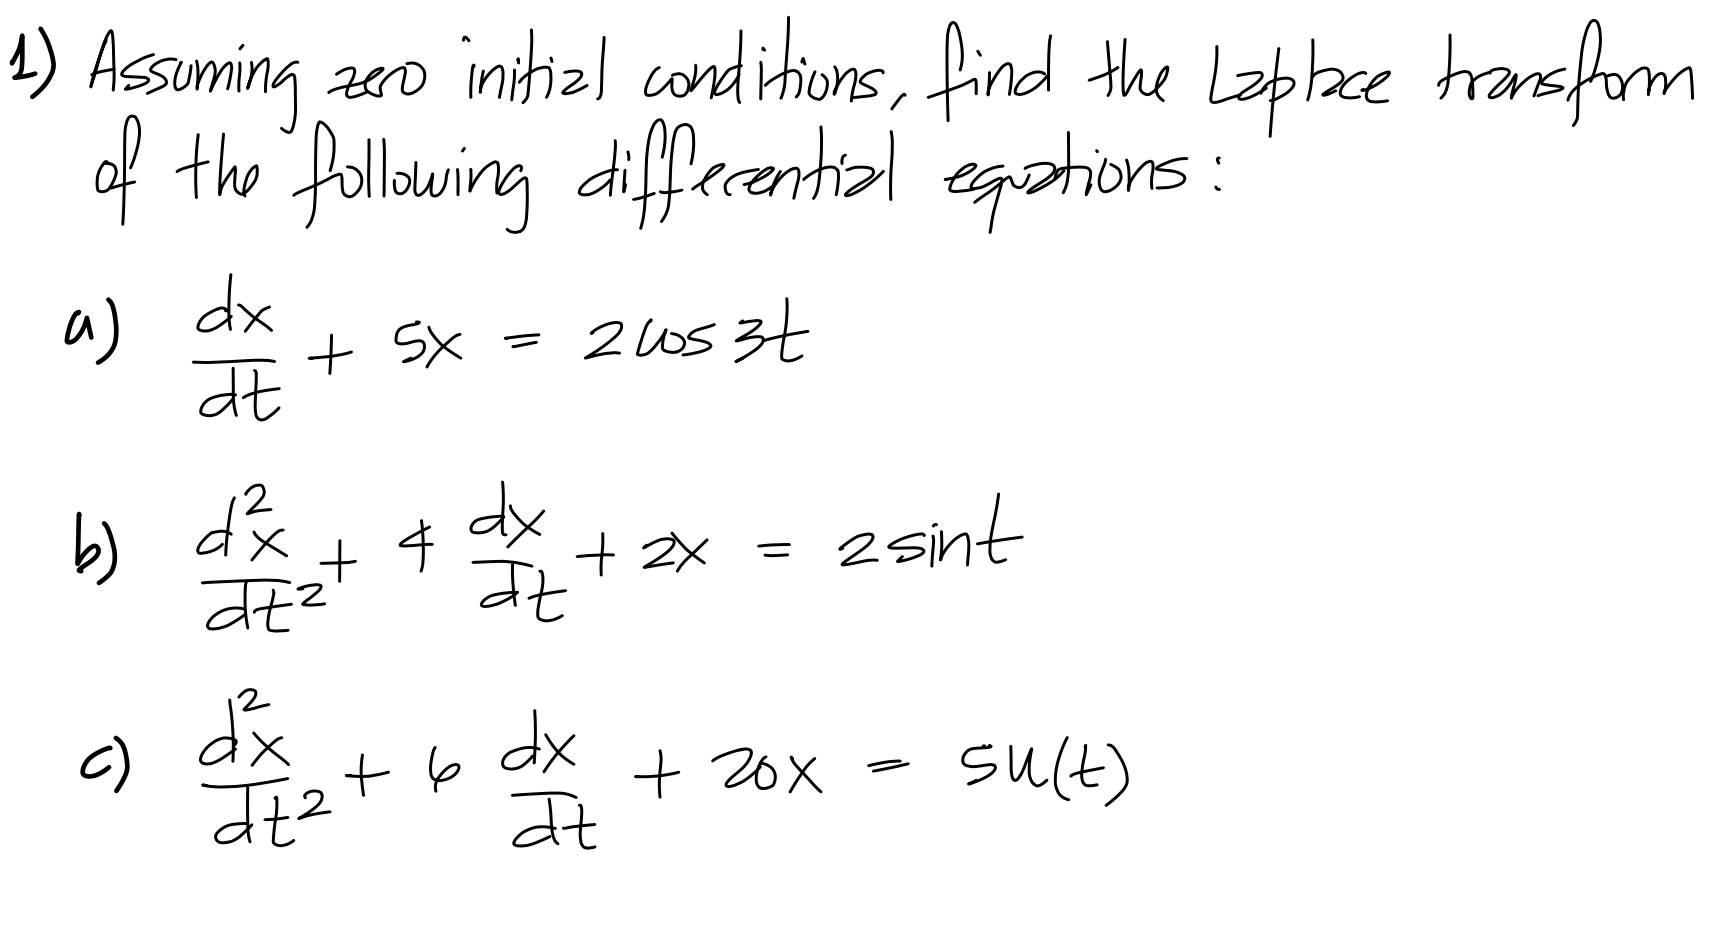 1) Assuming zero initial conditions, find the Laplace transform
of the following differential equations:
a) dx/dt + 5x = 2 cos 3t
b) d²x/dt² + 4 dx/dt + 2x = 2 sin t
c) d²x/dt² + 6 dx/dt + 20x = 5u(t)